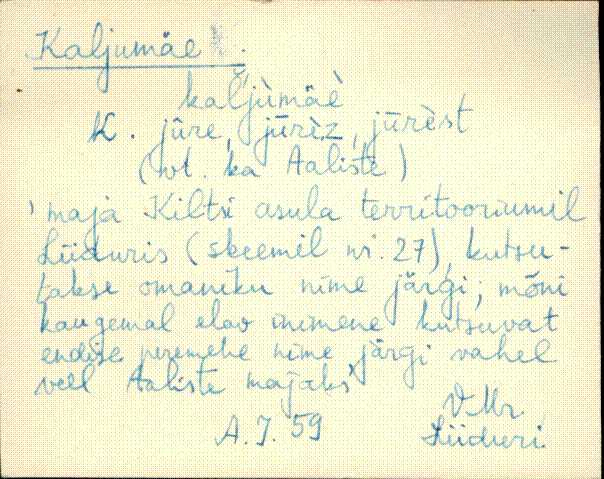 Kaljumäe
kaljùmäè
K. jûre, jūrèz, jūrèst
(vt. ka Aaliste)
'maja Kiltsi asula territooriumil
Liiduris (skeemil nr. 27), kutsu-
takse omaniku nime järgi; mõni
kaugemal elav inimene kutsuvat
endise peremehe nime järgi vahel
veel Aaliste majaks'
V.Mr.
A.J. 59 Liiduri